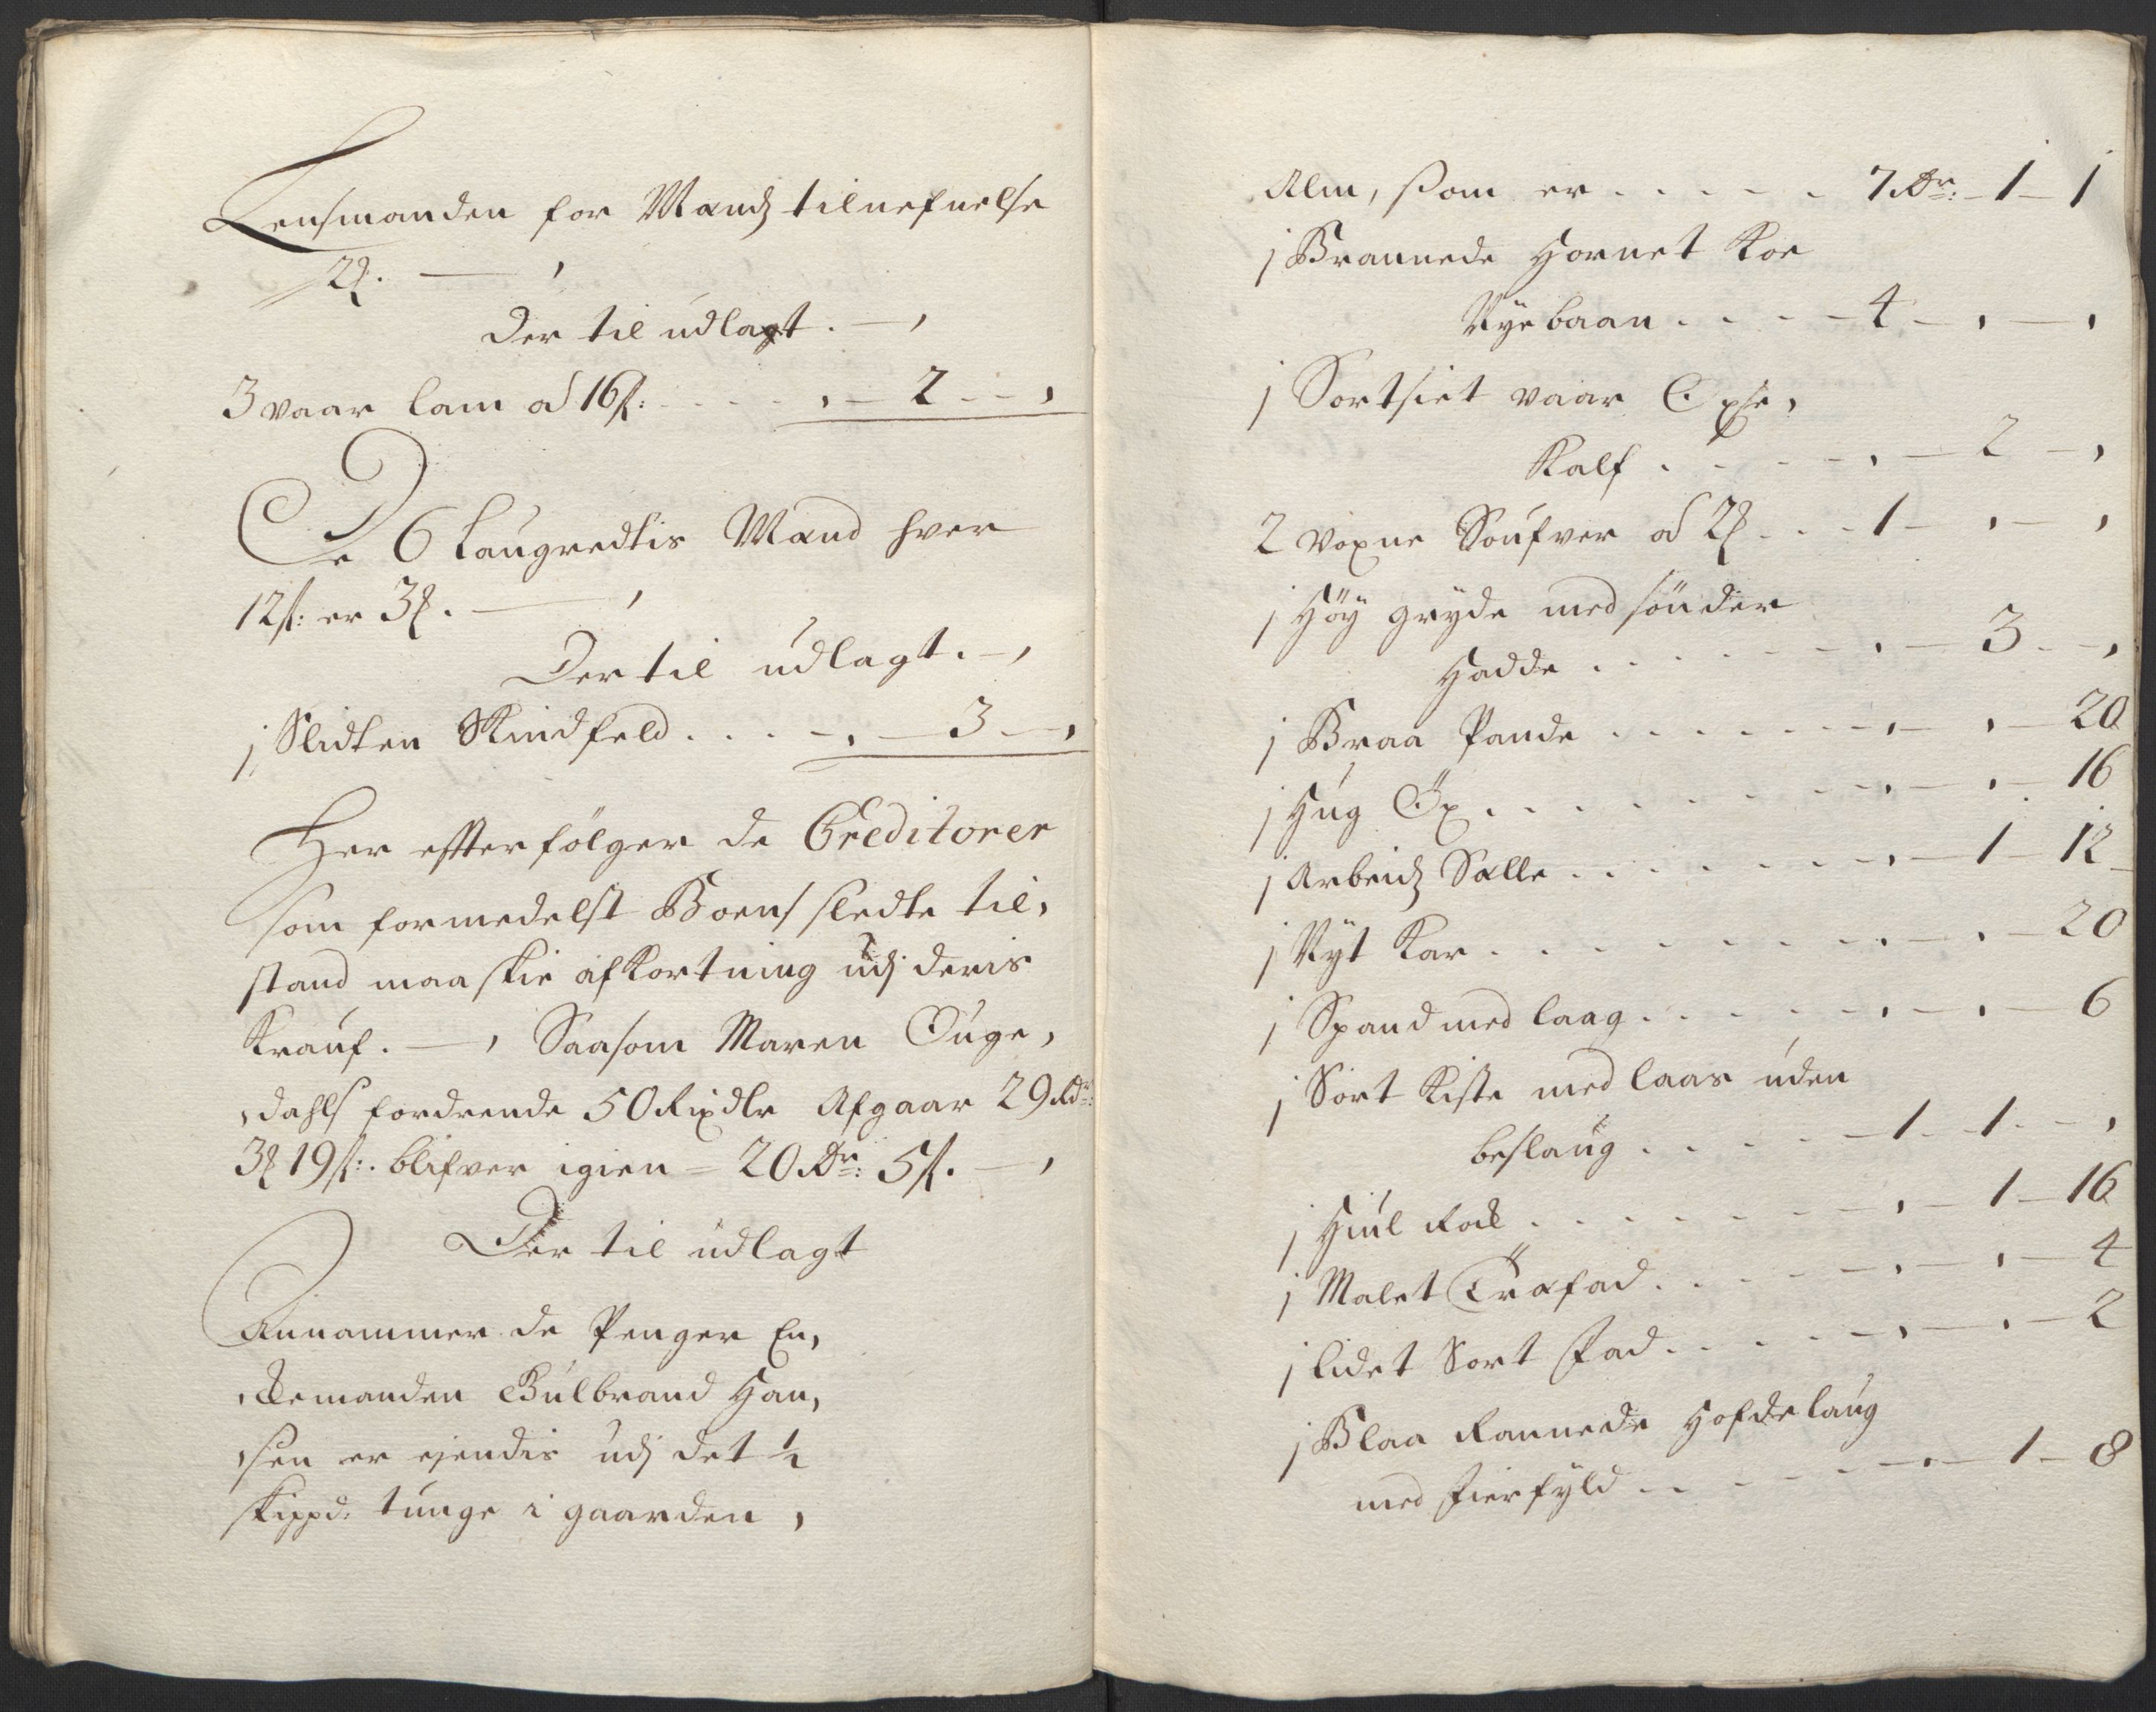 Lensmanden for Mands tilnefnelse
2 ƶ. — ,
der til udlagt. — ,
3 vaar lam ad 16 s: - - - - , — 2 - - ,
De 6 Laugrettis Mænd hver
12 s: er 3 ƶ. — ,
Der til udlagt. — ,
j Slidten Skindfeld . . . - , — 3 — ,
Her efterfølger de Creditorer
som formedelst Boens sledte til,
stand maa skie afkortning udj deris
Krauf. — , Saasom Maren Ouge,
,dahls fordrende 50 Rixdlr Afgaar 29 Rdr:
3 ƶ 19 s:. blifver igien = 20 Rdr: 5 s. — ,
Der til udlagt
Annammer de Penger En,
,kemanden Gulbrand Han,
,sen er ejendis udj det ½
skippd: tunge i gaarden ,
Alm, som er . . . . . 7 Rdr: - 1 - 1
j Brannede Hornet Koe
Nyebaan . . . . - 4 - , - ,
j Sortsiet vaar Oxe,
Kalf . . . . - , - 2 - ,
2 voxne Soufver ad 2 ƶ . . - 1 - , - ,
j Høy gryde med sønder
Hadde . . . . . . - , - 3 - - ,
j Braa Pande . . . . . . . - , - , - 20
j Hug Öx . . . . . . . - , - , - 16
j Arbeids Sælle . . . . . . - , - 1 - 12
j Nyt Kar . . . . . . . - , - , - 20
j Spand med laag . . . . . , - , - 6
j Sort Kiste med laas uden
beslaug . . . . . - 1 - 1 - - ,
j Hiul Rok . . . . . . . - , - 1 - 16
j Malet Træfad . . . . - , - , - 4
j lidet Sort Fad . . . . . - , - , - 2
j Blaa Rannede Hofdelaug
med Fierfyld . . . . . - , - 1 - 8